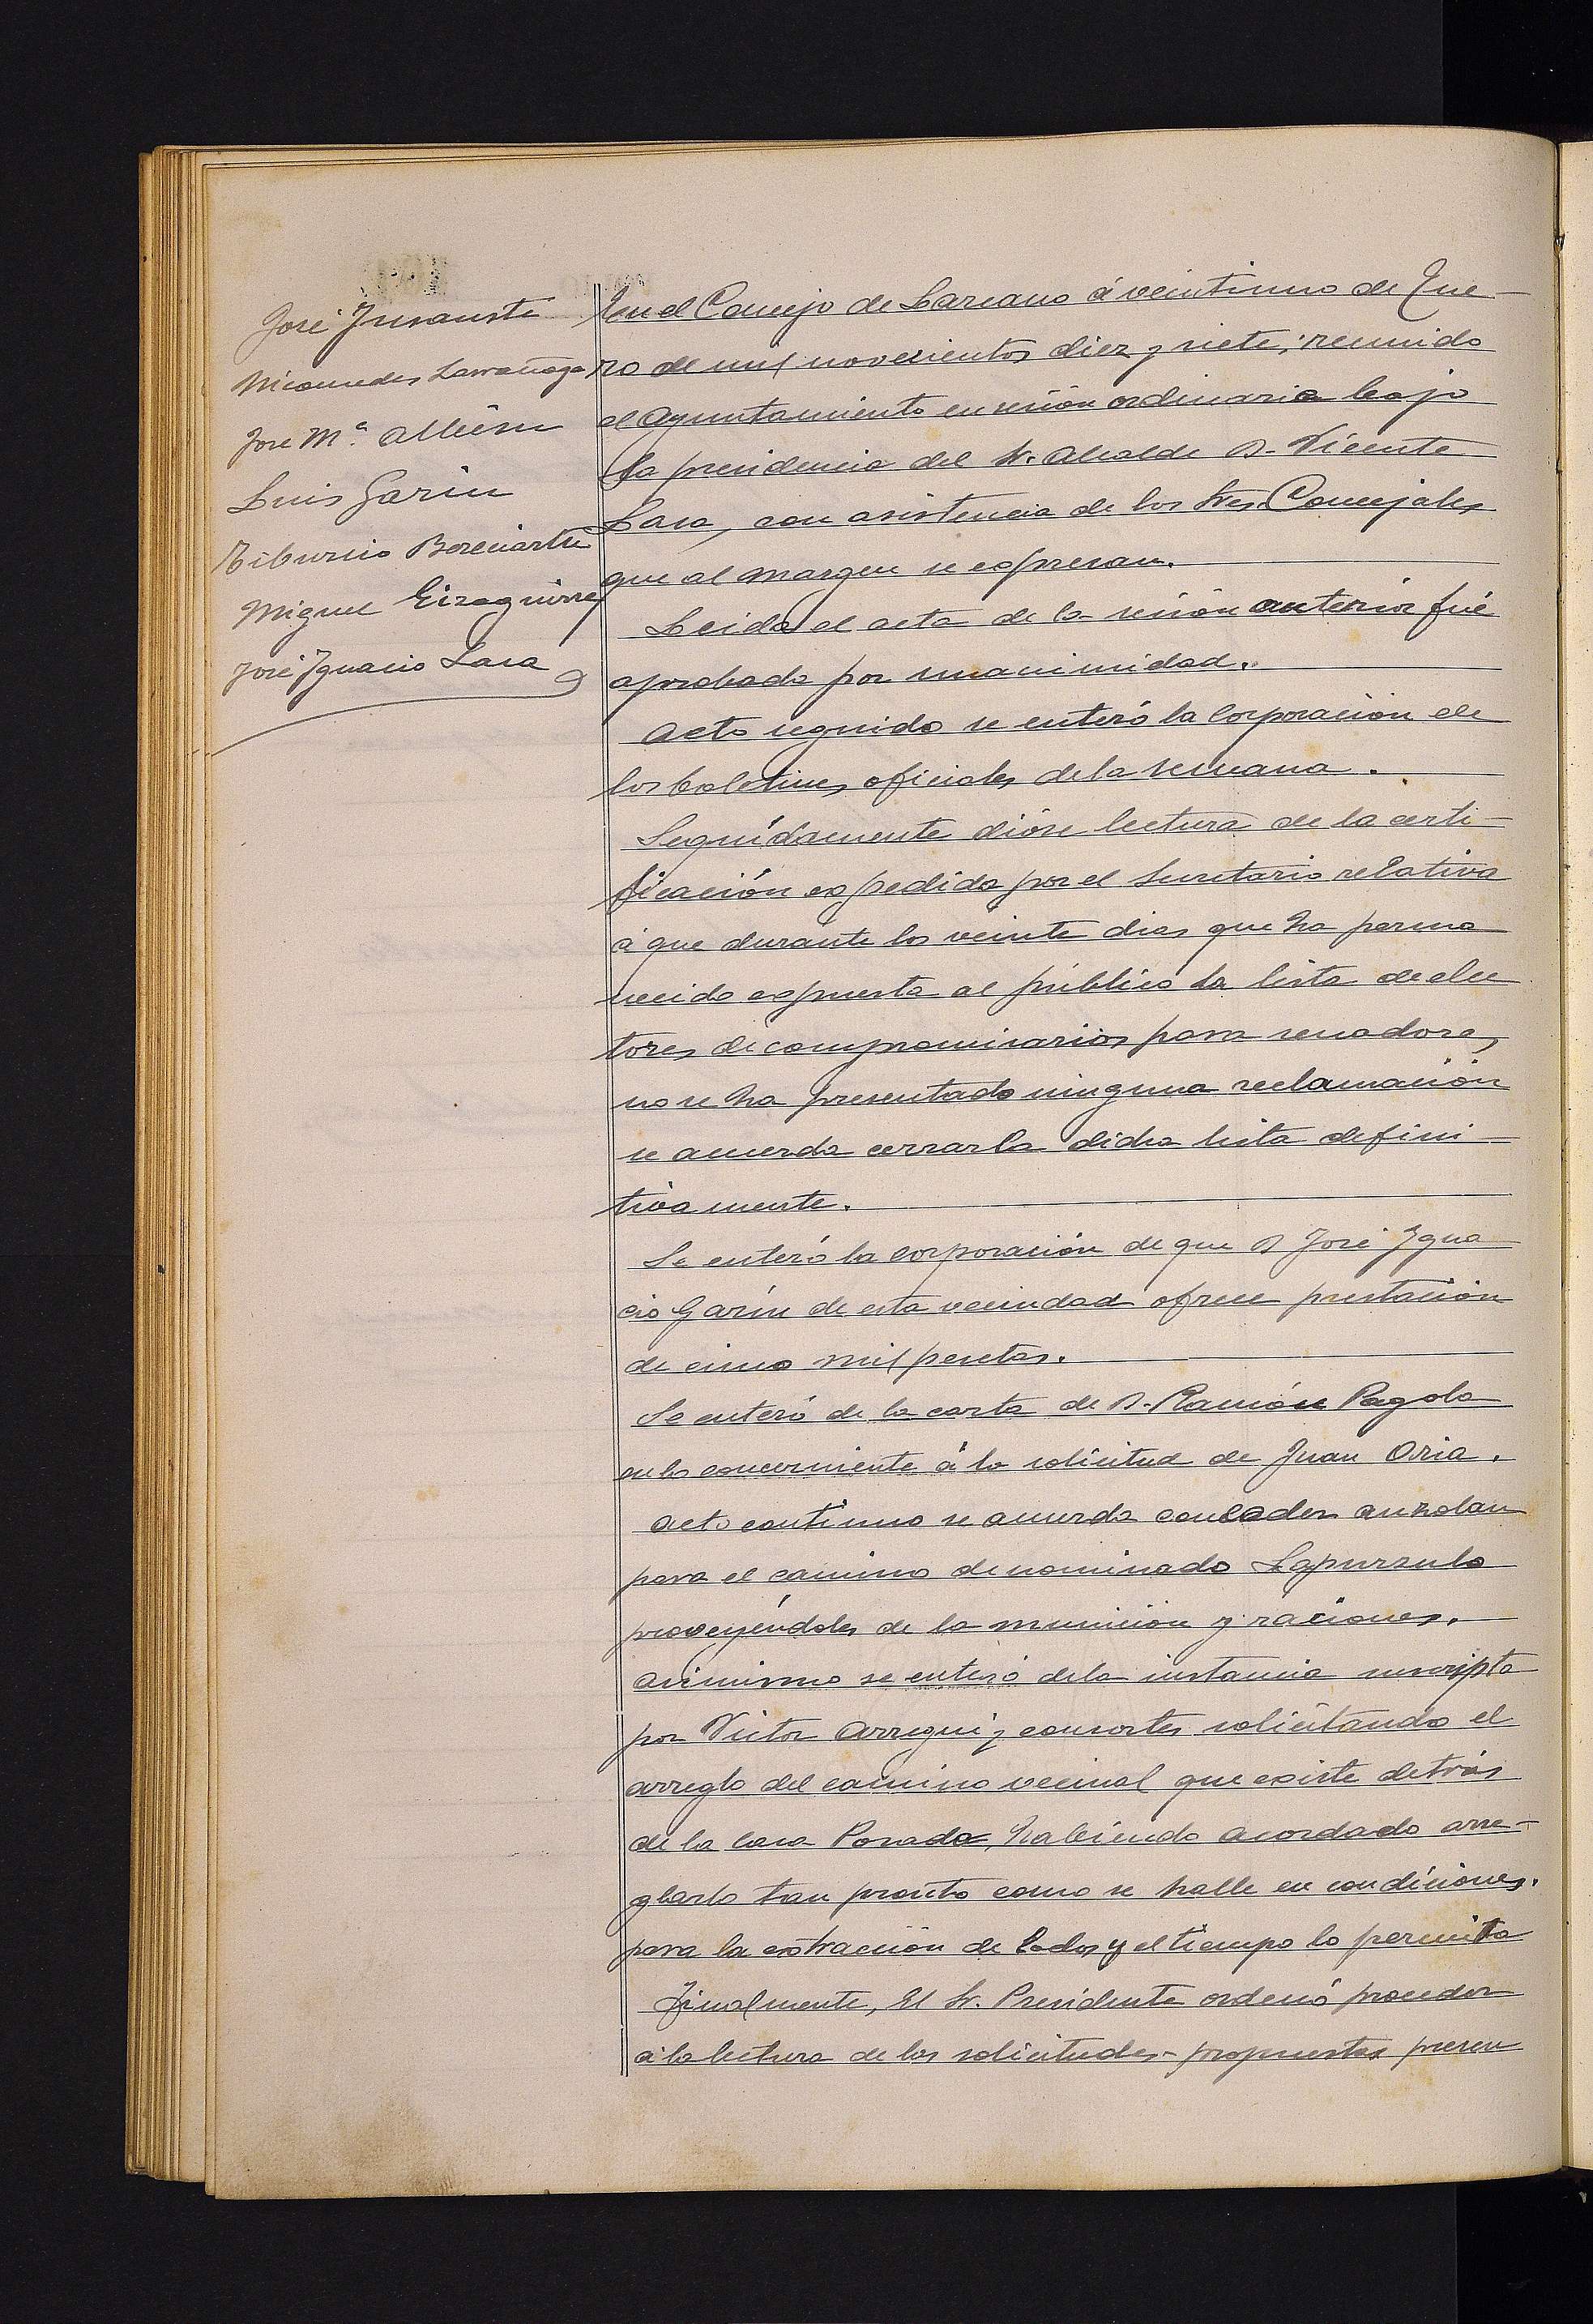 José Insausti
Nicomedes Larrañaga
José Mª. Albisu
Luis Garin
Tiburcio Bereciartu
Miguel Eizaguirre
José Ignacio Lasa
En el Concejo de Lazcano á veintiuno de Ene-
ro de mil novecientos diez y siete; reunido
el Ayuntamiento en sesión ordinaria bajo
la presidencia del Sr. Alcalde D. Vicente
Lasa, con asistencia de los Sres. Concejales
que al margen se expresan.
Leida el acta de la sesión anterior fué
aprobada por unanimidad.
Acto seguido se enteró la Corporación de
los boletines oficiales de la semana.
Seguídamente dióse lectura de la certi-
ficación expedida por el Secretario relativa
á que durante los veinte dias que ha perma
necido expuesta al público la lista de elec
tores de compromisarios para senadores,
no se ha presentado ninguna reclamación
se acuerda cerrarla dicha lista defini-
tivamente.
Se enteró la corporación de que D José Igna
cio Garín de esta vecindad ofrece prestación
de cinco mil pesetas.
Se enteró de la carta de D. Ramón Pagola
en lo concerniente á la solicitud de Juan Oria.
Acto continuo se acuerda conceder auzolan
para el camino denominado Lapurzulo
proveyéndoles de la munición y raciones.
Asimismo se enteró de la instancia suscripta
por Victor Arregui y consortes solicitando el
arreglo del camino vecinal que existe detrás
de la casa Posada, habiendo acordado arre-
glarlo tan pronto como se halle en condiciones.
para la extracción de lodos y el tiempo lo permita
Finalmente, El Sr. Presidente ordenó proceder
á la lectura de las solicitudes-propuestas presen